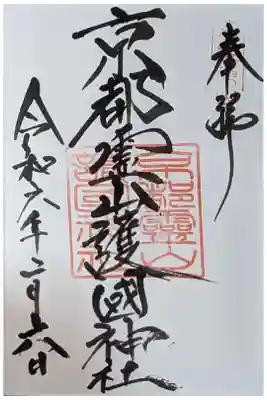 奉拝
京都霊山護國神社
令和六年二月六日